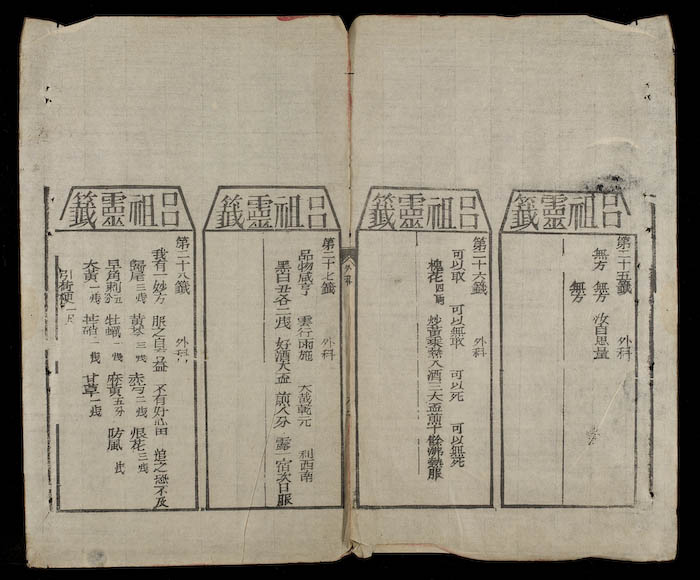 呂祖靈籤
第二十五籤 外科
無方 無方 汝自思量
無方
呂祖靈籤
第二十六籤 外科
可以取 可以無取 可以死 可以無死
槐花四兩 炒黃乘熱入酒三大盃煎十餘沸熱服
呂祖靈籤
第二十七籤 外科
品物咸亨 雲行雨施 大哉乾元 利西南
黑白丑各二錢 好酒大盃 煎八分 露一宿次日服
呂祖靈籤
第二十八籤 外科
我有一妙方 服之自 益 不有好心田 追之恐不及
歸尾三錢 黃芩三錢 赤芍二錢 銀花三錢
皂角刺五分 牡蠣一錢 麻黃五分 防風 錢
大黃一錢 錢 甘草一錢
引